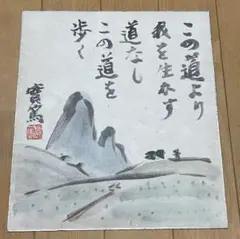 この道より
我を生かす
道なし
この道を
歩く
實篤